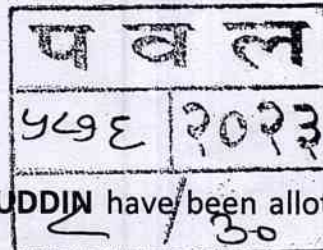 प व ल
२०२३
UDDIN have been allot
८/३०